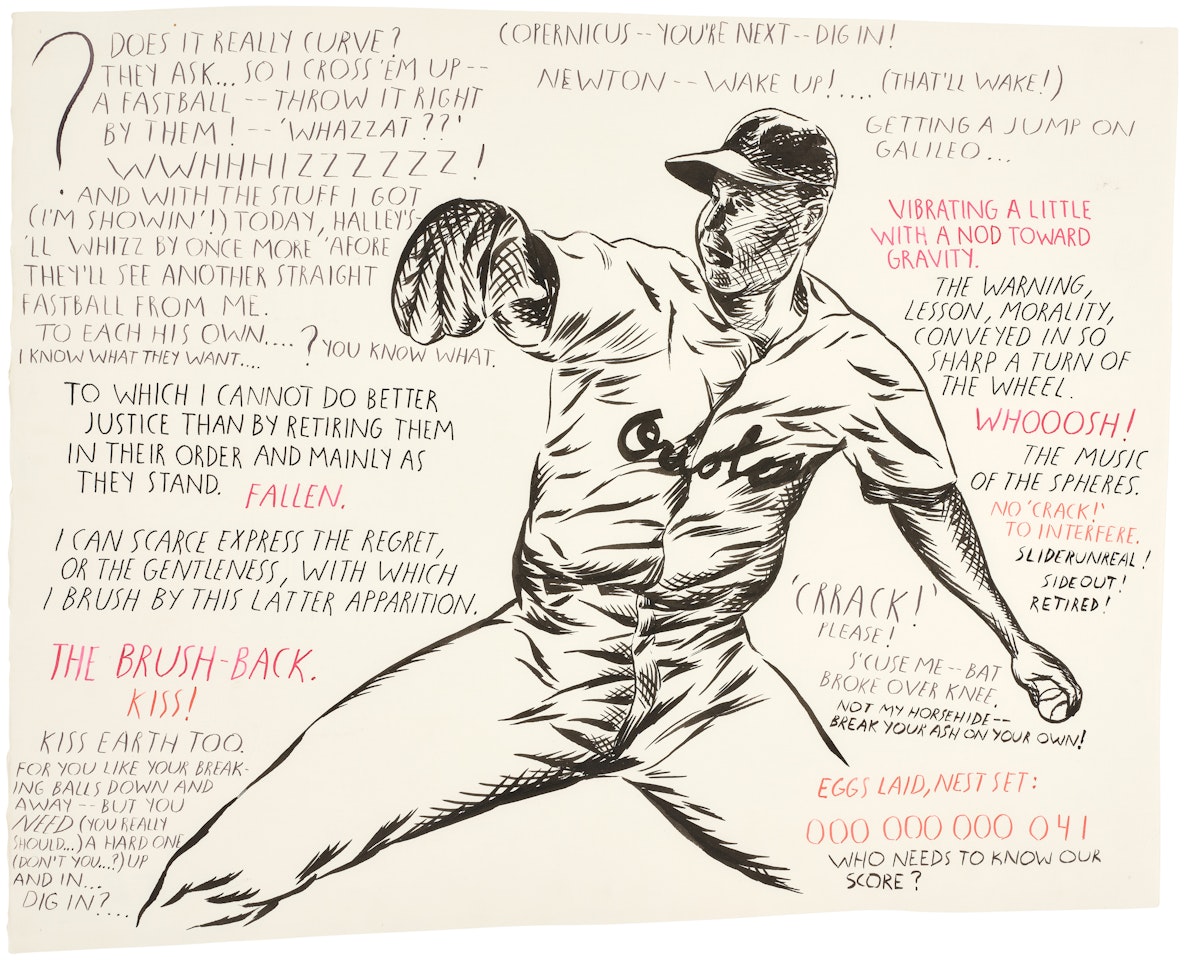 ? DOES IT REALLY CURVE?
THEY ASK... SO I CROSS 'EM UP--
A FASTBALL -- THROW IT RIGHT
BY THEM! -- 'WHAZZAT??'
WWHHHIZZZZZZ!
AND WITH THE STUFF I GOT
(I'M SHOWIN'!) TODAY, HALLEY'S-
'LL WHIZZ BY ONCE MORE 'AFORE
THEY'LL SEE ANOTHER STRAIGHT
FASTBALL FROM ME.
TO EACH HIS OWN....
I KNOW WHAT THEY WANT.... ? YOU KNOW WHAT.
TO WHICH I CANNOT DO BETTER
JUSTICE THAN BY RETIRING THEM
IN THEIR ORDER AND MAINLY AS
THEY STAND. FALLEN.
I CAN SCARCE EXPRESS THE REGRET,
OR THE GENTLENESS, WITH WHICH
I BRUSH BY THIS LATTER APPARITION.
THE BRUSH-BACK.
KISS!
KISS EARTH TOO.
FOR YOU LIKE YOUR BREAK-
ING BALLS DOWN AND
AWAY -- BUT YOU
NEED (YOU REALLY
SHOULD...) A HARD ONE
(DON'T YOU...?) UP
AND IN...
DIG IN?....
COPERNICUS -- YOU'RE NEXT -- DIG IN!
NEWTON -- WAKE UP!.... (THAT'LL WAKE!)
GETTING A JUMP ON
GALILEO...
VIBRATING A LITTLE
WITH A NOD TOWARD
GRAVITY.
THE WARNING,
LESSON, MORALITY,
CONVEYED IN SO
SHARP A TURN OF
THE WHEEL.
WHOOOSH!
THE MUSIC
OF THE SPHERES.
NO 'CRACK!'
TO INTERFERE.
SLIDERUNREAL!
SIDE OUT!
RETIRED!
Orioles
'CRRACK!'
PLEASE!
S'CUSE ME -- BAT
BROKE OVER KNEE.
NOT MY HORSEHIDE --
BREAK YOUR ASH ON YOUR OWN!
EGGS LAID, NEST SET:
000 000 000 041
WHO NEEDS TO KNOW OUR
SCORE?